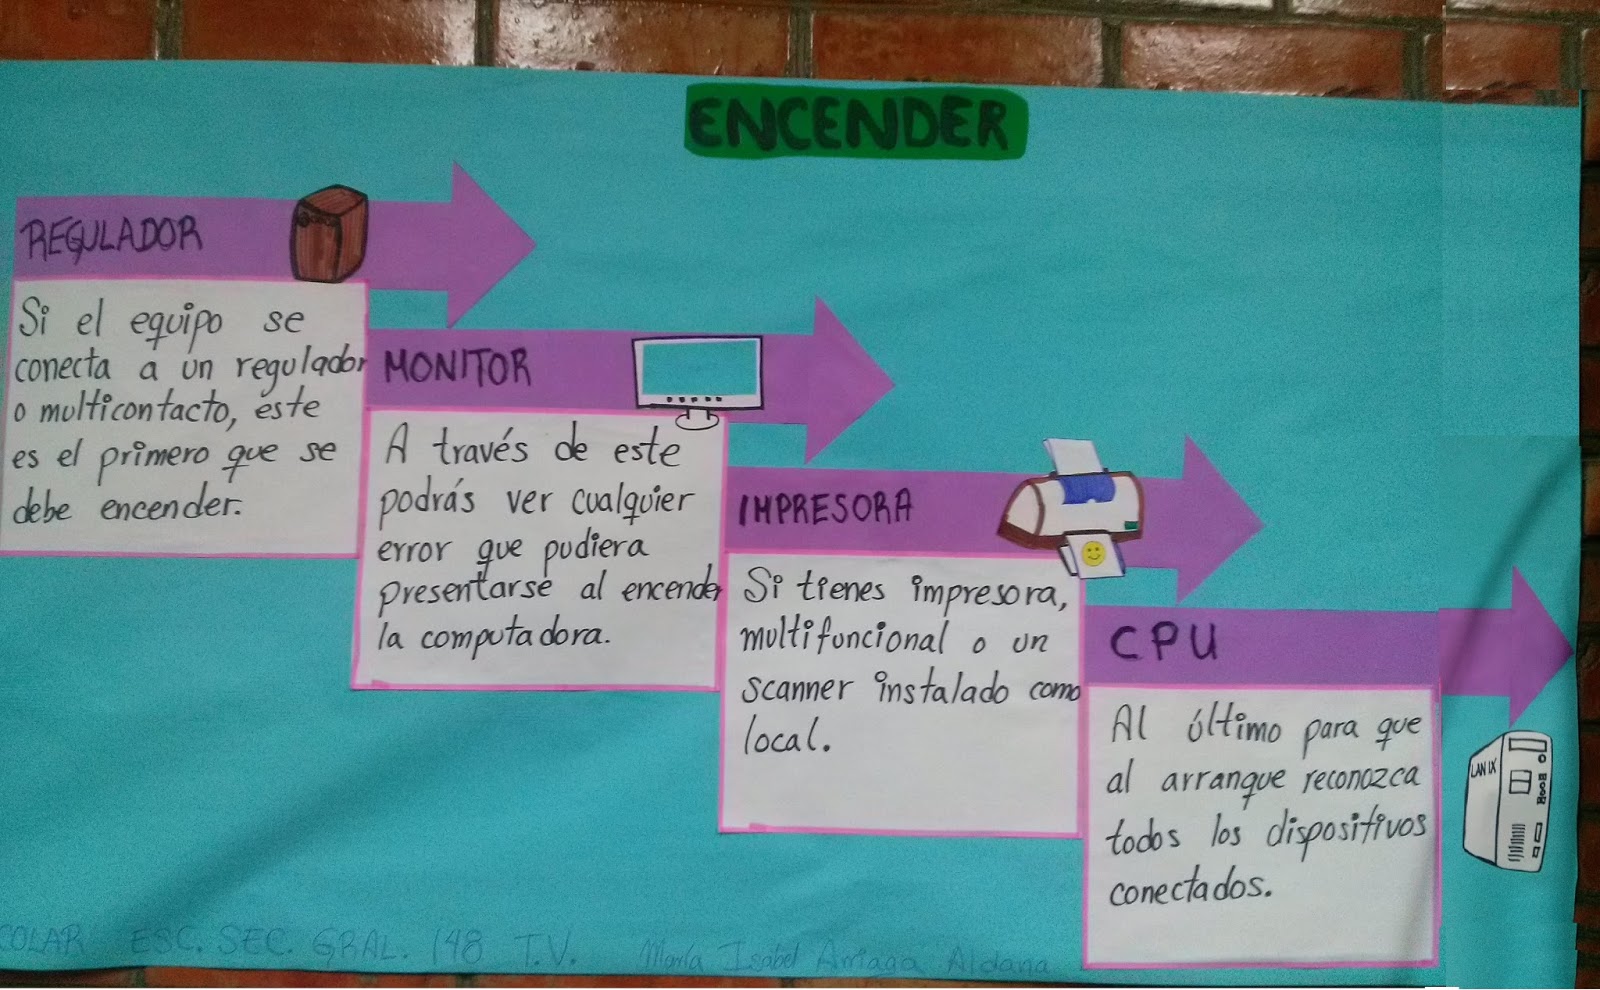 ENCENDER
REGULADOR
Si el equipo se
conecta a un regulador
o multicontacto, éste
es el primero que se
debe encender.
MONITOR
A través de este
podrás ver cualquier
error que pudiera
presentarse al encender
la computadora.
IMPRESORA
Si tienes impresora,
multifuncional o un
scanner instalado como
local.
CPU
Al último para que
al arranque reconozca
todos los dispositivos
conectados.
LANIX
COLAR ESC. SEC. GRAL. 148 T.V. María Isabel Arriaga Aldana